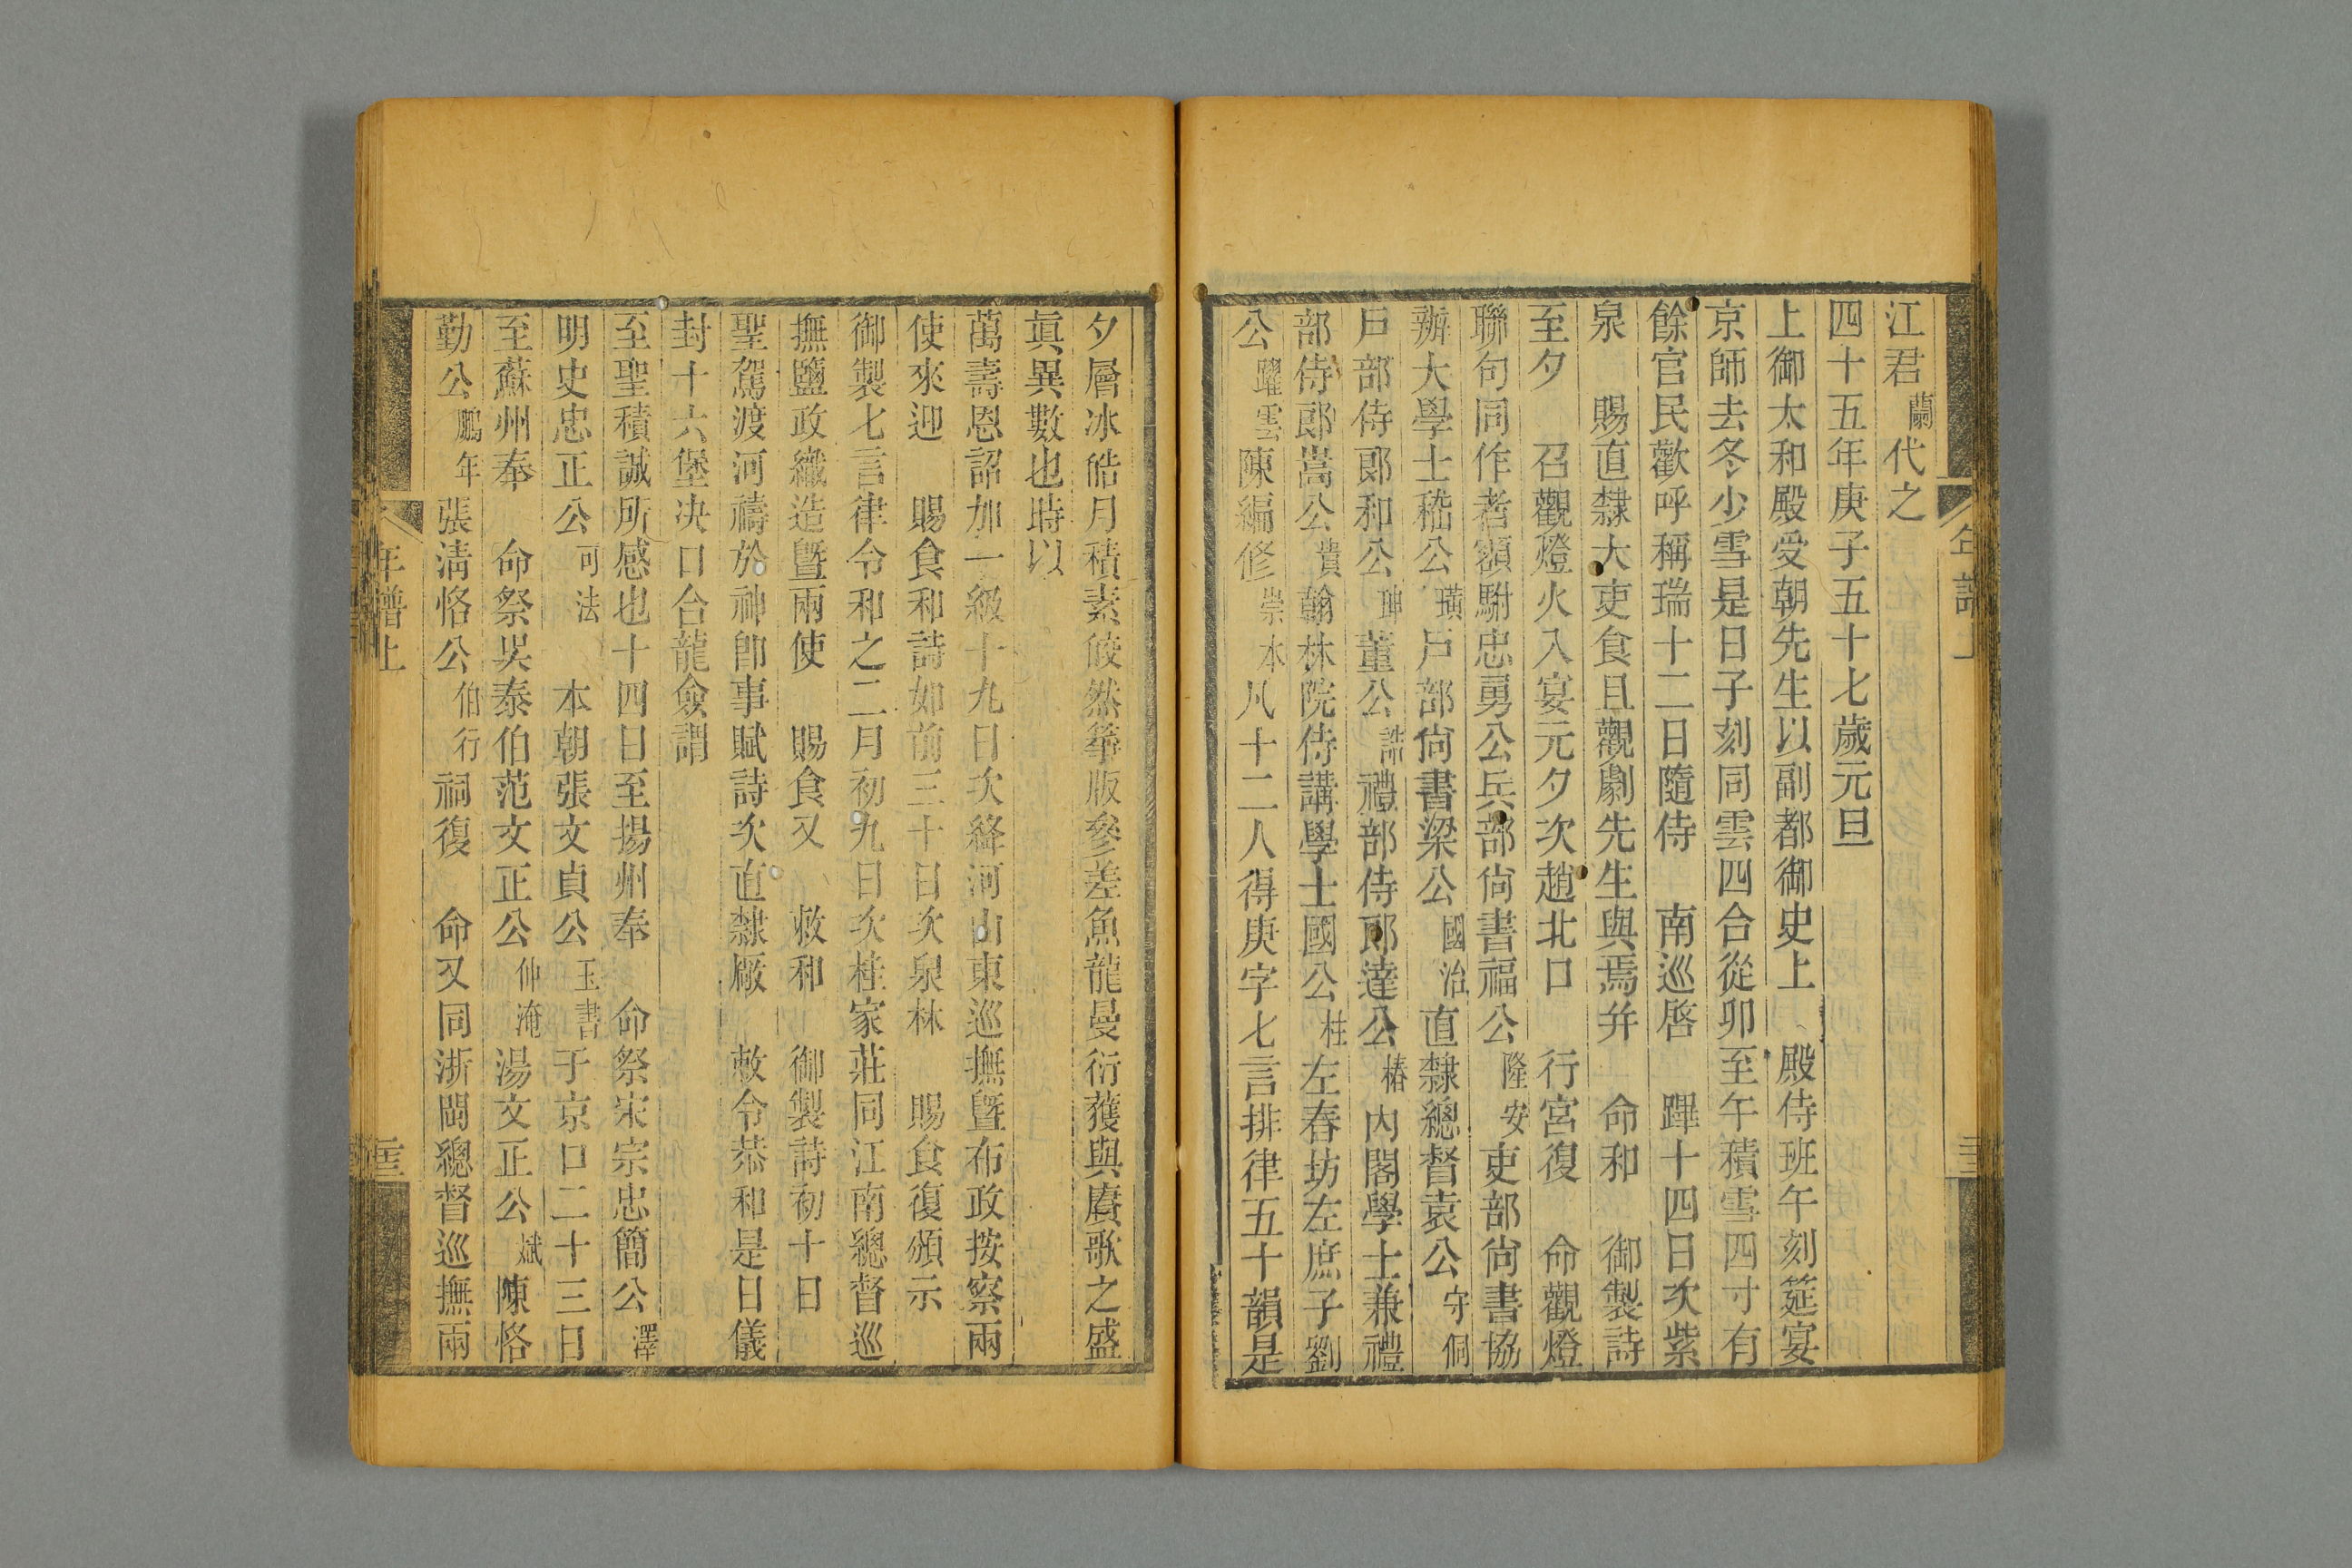 江君蘭代之
四十五年庚子五十七歲元旦
上御太和殿受朝先生以副都御史上　殿侍班午刻筵宴
京師去冬少雪是日子刻同雲四合從卯至午積雪四寸有
餘官民歡呼稱瑞十二日隨侍　南巡啓　蹕十四日次紫
泉　賜直隸大吏食且觀劇先生與焉并　命和　御製詩
至夕　召觀燈火入宴元夕次趙北口　行宮復　命觀燈
聯句同作者額駙忠勇公兵部尙書福公隆安吏部尙書協
辦大學士嵇公璜戶部尙書梁公國治直隸總督袁公守侗
戶部侍郞和公珅董公誥禮部侍郞達公椿內閣學士兼禮
部侍郞嵩公貴翰林院侍講學士國公柱左春坊左庶子劉
公躍雲陳編修崇本凡十二人得庚字七言排律五十韻是
夕層冰皓月積素皎然箏版參差魚龍曼衍獲與賡歌之盛
眞異數也時以
萬壽恩詔加一級十九日次絳河山東巡撫暨布政按察兩
使來迎　賜食和詩如前三十日次泉林　賜食復頒示
御製七言律令和之二月初九日次桂家莊同江南總督巡
撫鹽政織造暨兩使　賜食又　敕和　御製詩初十日
聖駕渡河禱於神卽事賦詩次直隸廠　敕令恭和是日儀
封十六堡决口合龍僉謂
至聖積誠所感也十四日至揚州奉　命祭宋宗忠簡公澤
明史忠正公可法　本朝張文貞公玉書于京口二十三日
至蘇州奉　命祭吳泰伯范文正公仲淹湯文正公斌陳恪
勤公鵬年張淸恪公伯行祠復　命又同浙閩總督巡撫兩
年譜上
年譜上